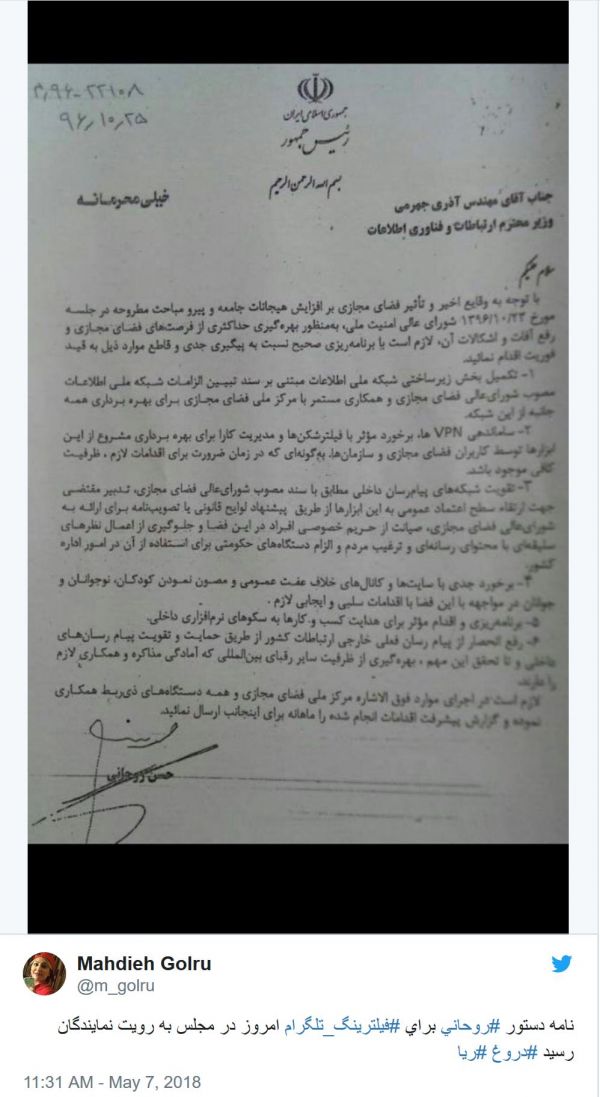 م/۹۶-۲۲۱۰۸
۹۶/۱۰/۲۵
جمهوری اسلامی ایران
رئیس جمهور
بسم الله الرحمن الرحیم
خیلی محرمانه
جناب آقای مهندس آذری جهرمی
وزیر محترم ارتباطات و فناوری اطلاعات
سلام علیکم
با توجه به وقایع اخیر و تأثیر فضای مجازی بر افزایش هیجانات جامعه و پیرو مباحث مطروحه در جلسه
مورخ ۱۳۹۶/۱۰/۲۳ شورای عالی امنیت ملی، به‌منظور بهره‌گیری حداکثری از فرصت‌های فضای مجازی و
رفع آفات و اشکالات آن، لازم است با برنامه‌ریزی صحیح نسبت به پیگیری جدی و قاطع موارد ذیل به قید
فوریت اقدام نمائید.
۱- تکمیل بخش زیرساختی شبکه ملی اطلاعات مبتنی بر سند تبیین الزامات شبکه ملی اطلاعات
مصوب شورای‌عالی فضای مجازی و همکاری مستمر با مرکز ملی فضای مجازی برای بهره برداری همه
جانبه از این شبکه.
۲- ساماندهی VPN ها، برخورد مؤثر با فیلترشکن‌ها و مدیریت کارا برای بهره برداری مشروع از این
ابزارها توسط کاربران فضای مجازی و سازمان‌ها، به‌گونه‌ای که در زمان ضرورت برای اقدامات لازم ، ظرفیت
کافی موجود باشد.
۳- تقویت شبکه‌های پیام‌رسان داخلی مطابق با سند مصوب شورای‌عالی فضای مجازی، تدبیر مقتضی
جهت ارتقاء سطح اعتماد عمومی به این ابزارها از طریق پیشنهاد لوایح قانونی یا تصویب‌نامه برای ارائه به
شورای‌عالی فضای مجازی، صیانت از حریم خصوصی افراد در این فضا و جلوگیری از اعمال نظرهای
سلیقه‌ای با محتوای رسانه‌ای و ترغیب مردم و الزام دستگاه‌های حکومتی برای استفاده از آن در امور اداره
کشور.
۴- برخورد جدی با سایت‌ها و کانال‌های خلاف عفت عمومی و مصون نمودن کودکان، نوجوانان و
جوانان در مواجهه با این فضا با اقدامات سلبی و ایجابی لازم .
۵- برنامه‌ریزی و اقدام مؤثر برای هدایت کسب و کارها به سکوهای نرم‌افزاری داخلی.
۶- رفع انحصار از پیام رسان فعلی خارجی ارتباطات کشور از طریق حمایت و تقویت پیام رسان‌های
داخلی و تا تحقق این مهم ، بهره‌گیری از ظرفیت سایر رقبای بین‌المللی که آمادگی مذاکره و همکاری لازم
را دارند.
لازم است در اجرای موارد فوق الاشاره مرکز ملی فضای مجازی و همه دستگاه‌های ذی‌ربط همکاری
نموده و گزارش پیشرفت اقدامات انجام شده را ماهانه برای اینجانب ارسال نمائید.
حسن روحانی
Mahdieh Golru
@m_golru
نامه دستور #روحاني براي #فيلترينگ_تلگرام امروز در مجلس به رويت نمايندگان
رسيد #دروغ #ريا
11:31 AM - May 7, 2018